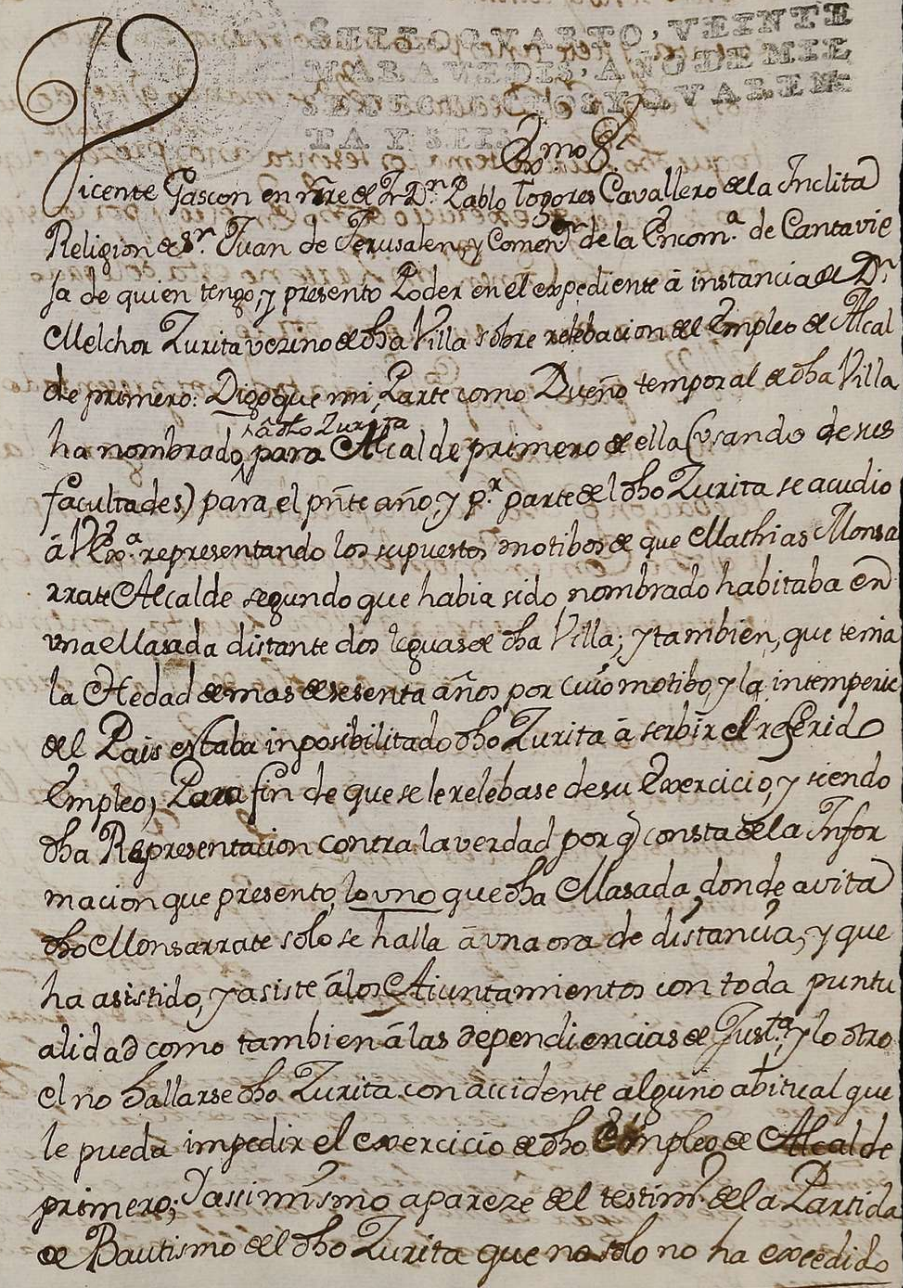 SELLO QVARTO, VEINTE
MARAVEDIS, AÑO DE MIL
SETECIENTOS Y QVAREN
TA Y SEIS.
Exmo Sr
Vicente Gascon en nr̃e de Fr Dn. Pablo Togores Cavallero de la Inclita
Religion de Sn Juan de Jerusalen, y Comenr de la Encoma. de Cantavie
ja de quien tengo, y presento Poder en el expediente à instancia de Dn
Melchor Zurita vezino de dha Villa sobre relebacion del Empleo de Alcal
de primero: Digo que mi Parte como Dueño temporal de dha Villa
ha nombrado â dho Zurita para Alcalde primero de ella (usando de sus
facultades) para el pñte año, y pr. parte del dho Zurita se acudio
à V. Exa. representando los supuestos motibos de que Mathias Monsa
rrate Alcalde segundo que habia sido nombrado habitaba en
vna Masada distante dos leguas de dha Villa; y tambien, que tenia
la Hedad de mas de sesenta años por cuio motibo, y la intemperie
del Pais estaba inposibilitado dho Zurita à serbir el referido
Empleo, Para fin de que se le relebase de su Exercicio, y siendo
dha Representacion contra la verdad por q consta de la Infor
macion que presento, lo vno que dha Masada donde avita
dho Monsarrate solo se halla à vna ora de distancia, y que
ha asistido, y asiste à los Aiuntamientos con toda puntu
alidad como tambien à las dependiencias de Justa. y lo otro
el no hallarse dho Zurita con accidente alguno abitual que
le pueda impedir el exercicio de dho Empleo de Alcalde
primero; Y assimismo apareze del testimo. de la Partida
de Bautismo del dho Zurita que no solo no ha excedido